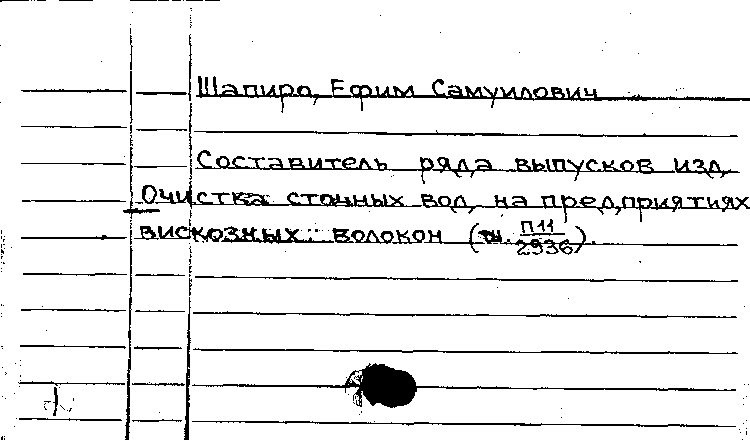 Шапиро, Ефим Самуилович
Составитель ряда выпусков изд.
Очистка сточных вод на предприятиях
вискозных волокон (ш. П11/2936).